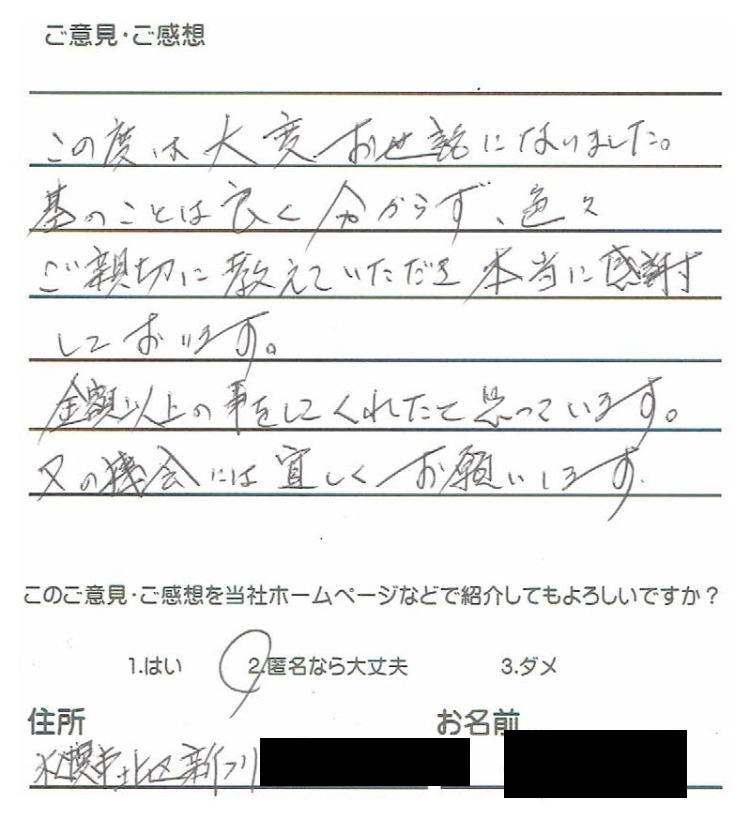 ご意見・ご感想
この度は大変お世話になりました。
基のことは良く分からず、色々
ご親切に教えていただき本当に感謝
しております。
金額以上の事をしてくれたと思っています。
又の機会には宜しくお願いします
このご意見・ご感想を当社ホームページなどで紹介してもよろしいですか？
1.はい 2.匿名なら大丈夫 3.ダメ
住所 お名前
札幌市北区新